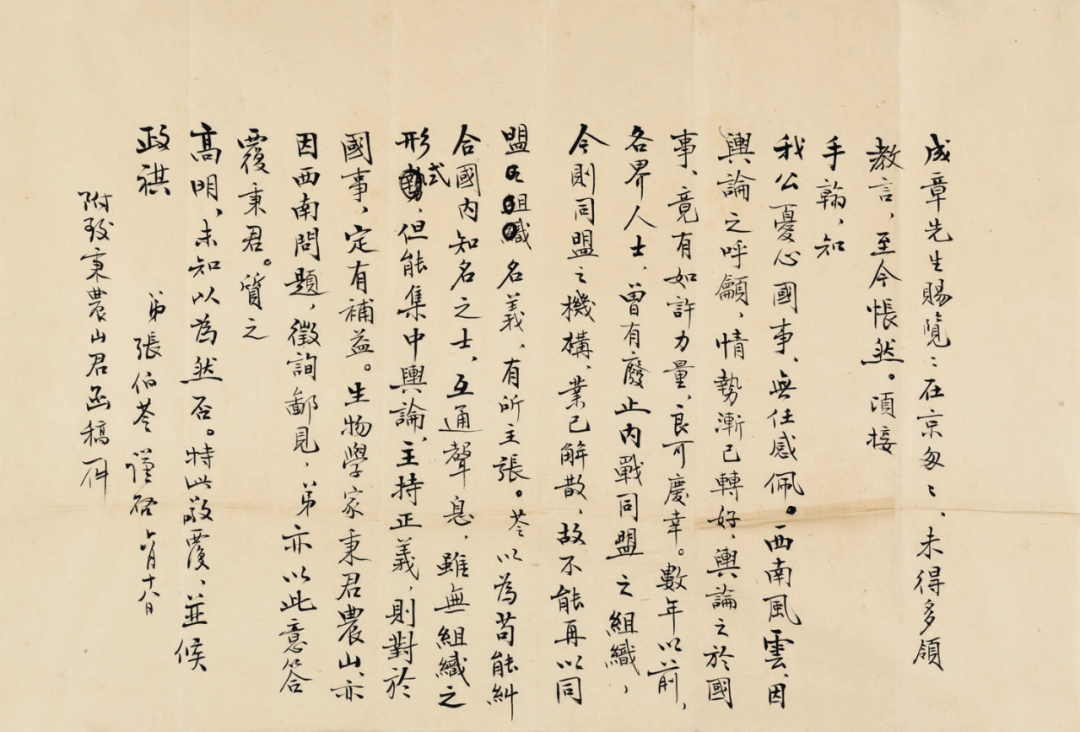 成章先生賜覽：在京匆匆、未得多領
教言、至今悵然。頃接
手翰、知
我公憂心國事、無任感佩。西南風雲、因
輿論之呼籲、情勢漸已轉好、輿論之於國
事、竟有如許力量、良可慶幸。數年以前、
各界人士、曾有廢止內戰同盟之組織、
今則同盟之機構、業已解散、故不能再以同
盟名義、有所主張。苓以為苟能糾
合國內知名之士、互通聲息、雖無組織之
形式、但能集中輿論、主持正義、則對於
國事、定有補益。生物學家秉君農山、亦
因西南問題、徵詢鄙見、弟亦以此意答
覆秉君。質之
高明、未知以為然否。特此敬覆、並候
政祺
弟張伯苓謹啓 月十 日
附致秉農山君函稿一件